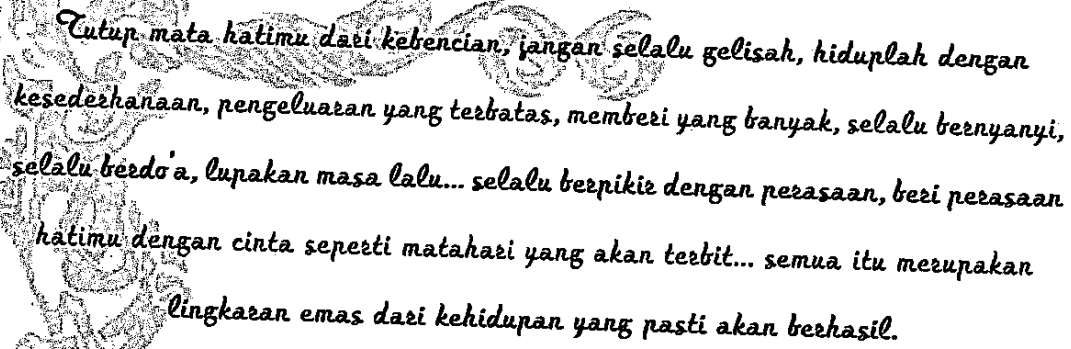 Tutup mata hatimu dari kebencian, jangan selalu gelisah, hiduplah dengan
kesederhanaan, pengeluaran yang terbatas, memberi yang banyak, selalu bernyanyi,
selalu berdo'a, lupakan masa lalu... selalu berpikir dengan perasaan, beri perasaan
hatimu dengan cinta seperti matahari yang akan terbit... semua itu merupakan
lingkaran emas dari kehidupan yang pasti akan berhasil.